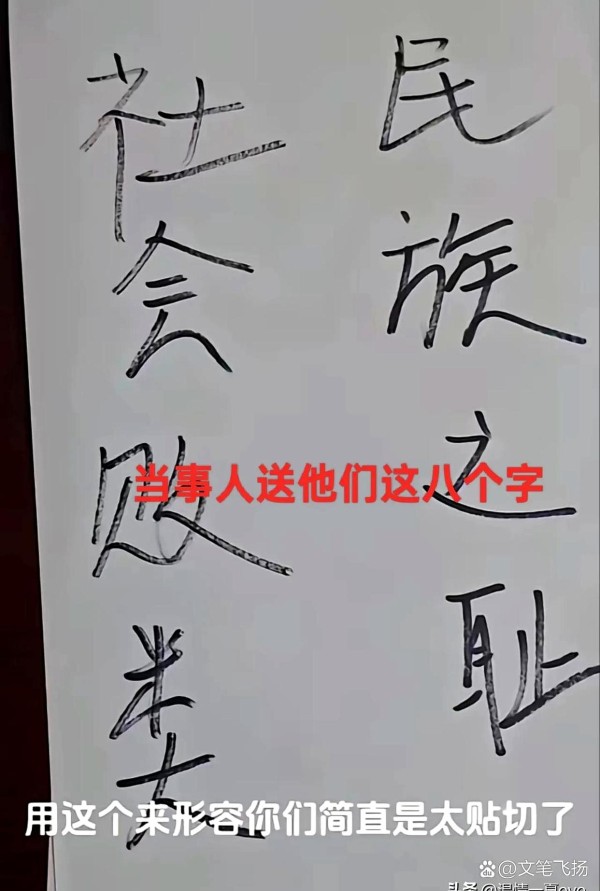 民族之耻
社会败类
当事人送他们这八个字
用这个来形容你们简直是太贴切了
@文笔飞扬